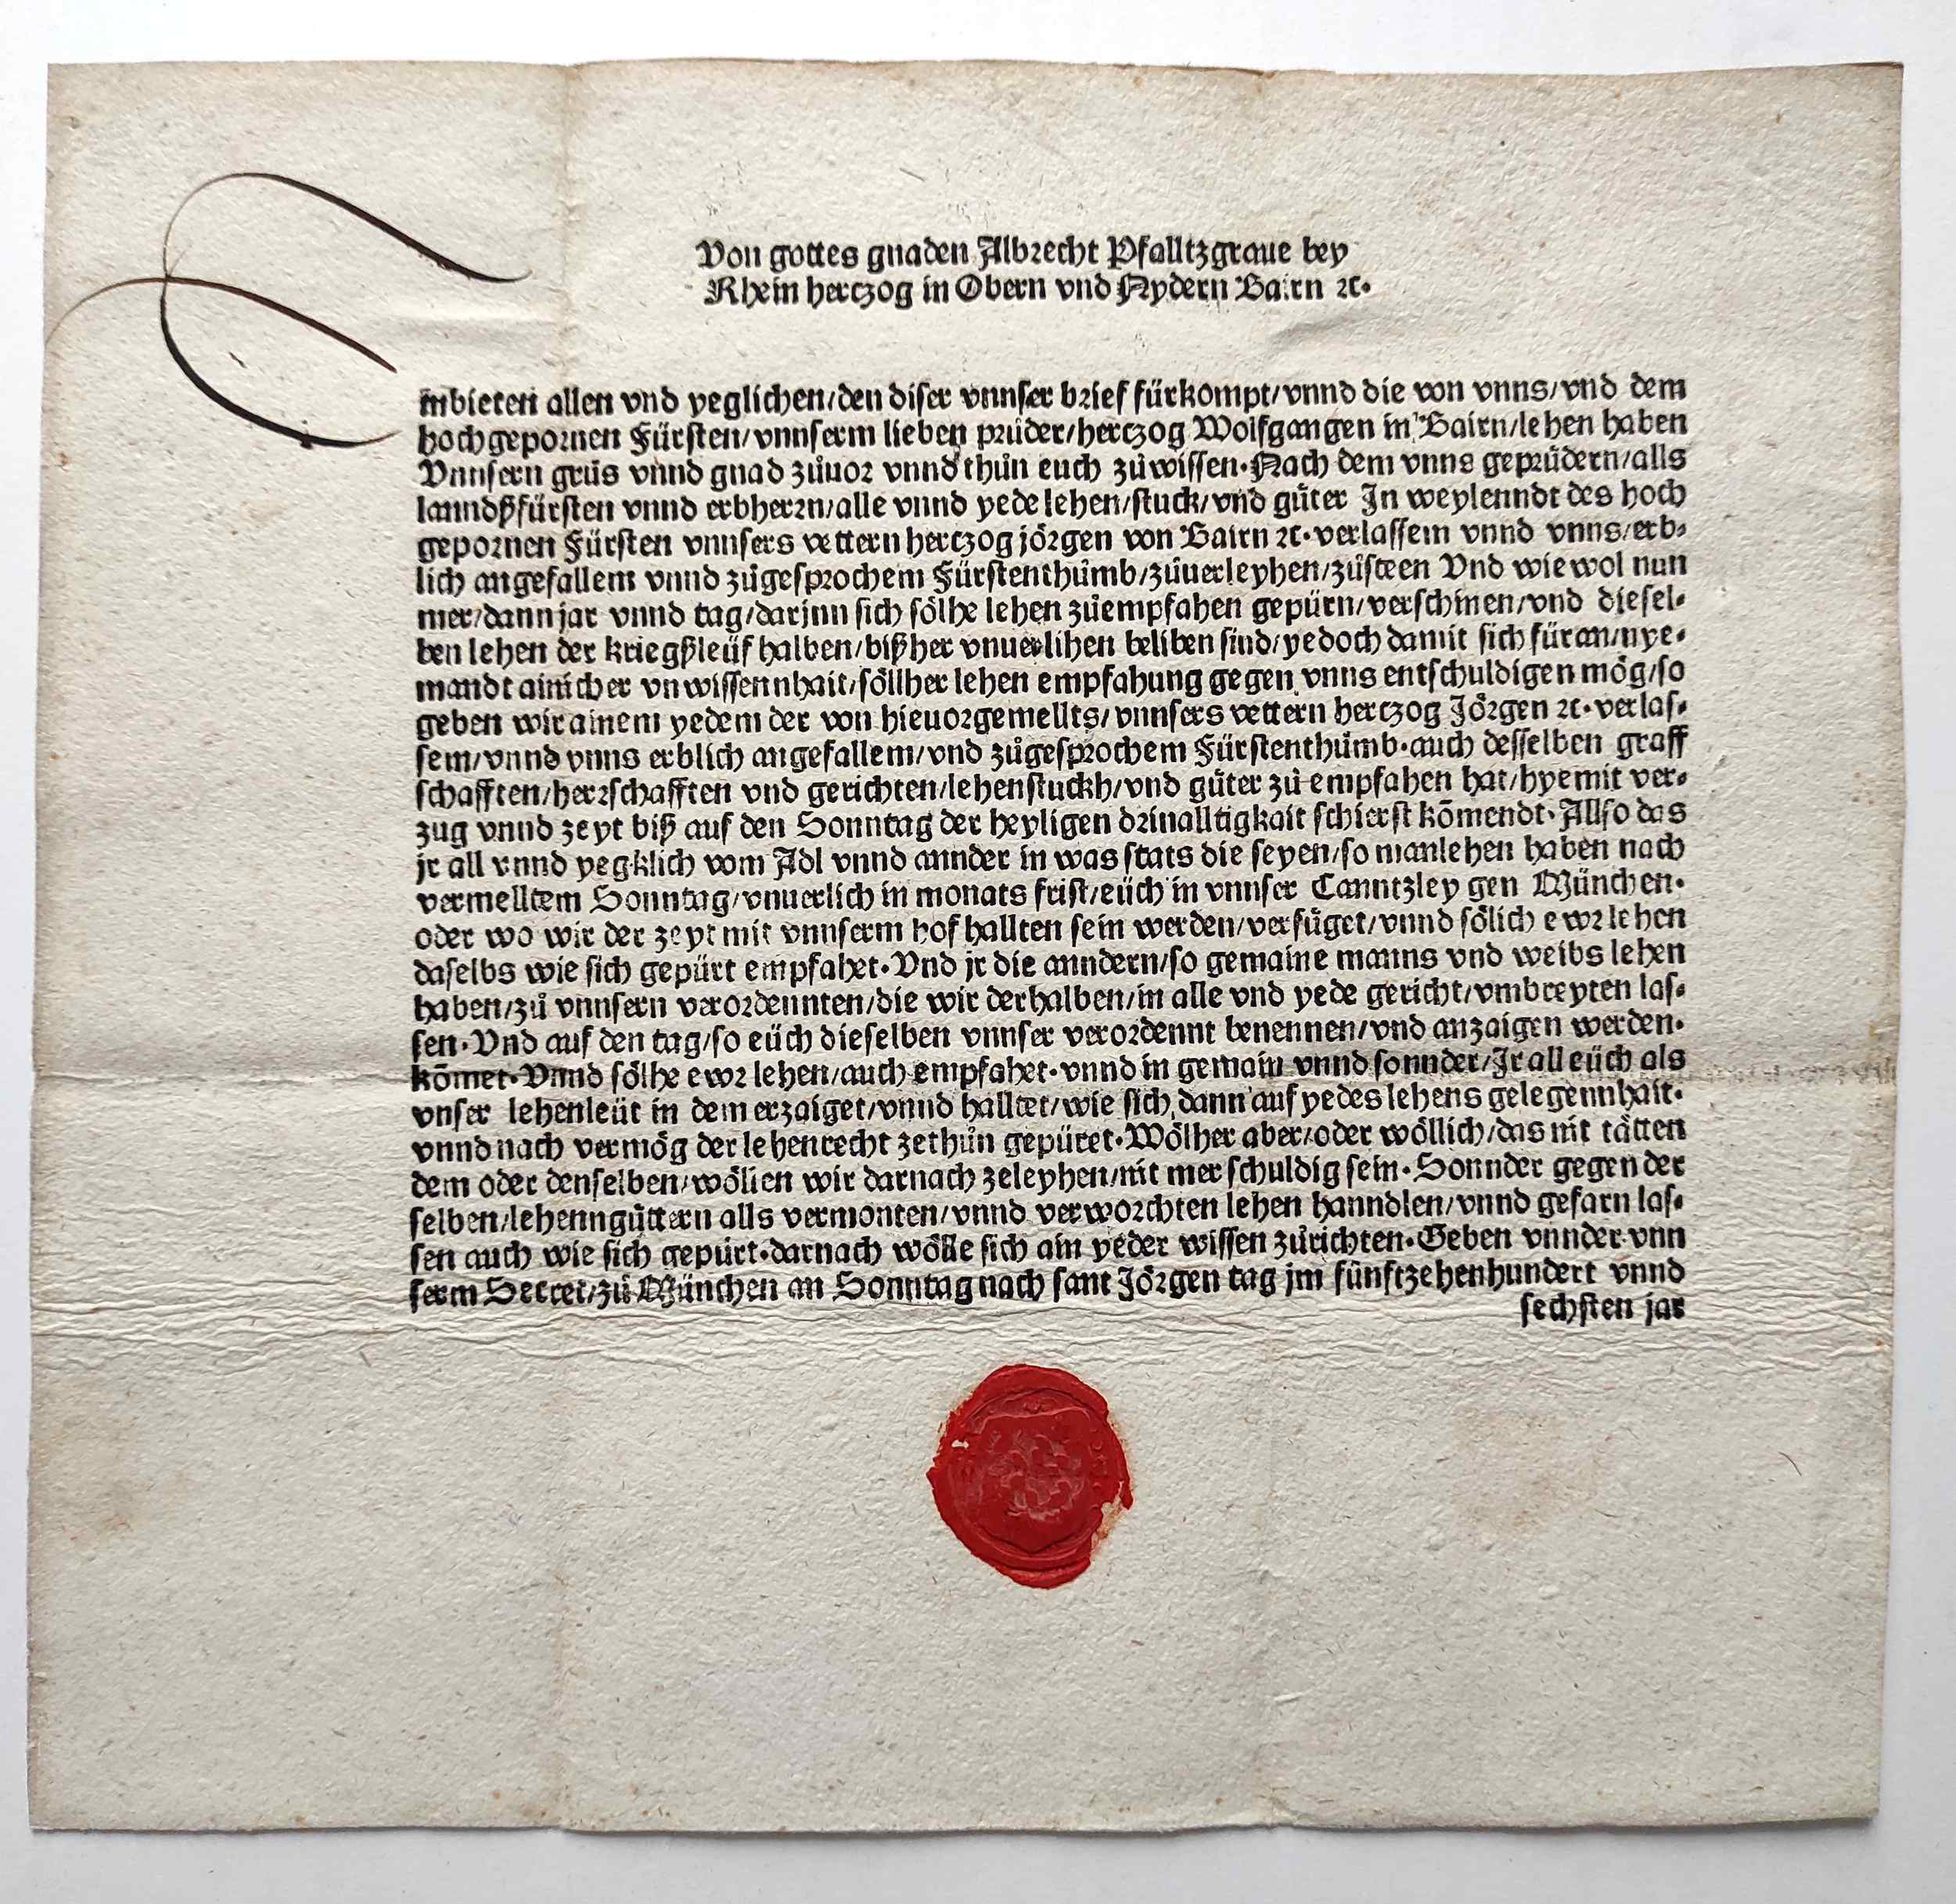 Von gottes gnaden Albrecht Pfalltzgraue bey
Rhein hertzog in Obern vnd Nydern Bairn ꝛc.
Enbieten allen vnd yeglichen/den diser vnnser brief fürkompt/vnnd die von vnns/vnd dem
hochgepornen Fürsten/vnnserm lieben průder/hertzog Wolfgangen in Bairn/lehen haben
Vnnsern grůs vnnd gnad zůuor vnnd thůn euch zůwissen. Nach dem vnns geprüdern/alls
lanndßfürsten vnnd erbherrn/alle vnnd yede lehen/stuck/vnd gůter In weylenndt des hoch
gepornen Fürsten vnnsers vettern hertzog jörgen von Bairn ꝛc. verlassem vnnd vnns/erb-
lich angefallem vnnd zůgesprochem Fürstenthůmb/zůuerleyhen/zůsteen Vnd wiewol nun
mer/dann jar vnnd tag/darjnn sich sölhe lehen zůempfahen gepürn/verschinen/vnd diesel-
ben lehen der kriegßleüf halben/bißher vnuerlihen beliben sind/yedoch damit sich füran/nye-
mandt ainicher vnwissennhait/söllher lehen empfahung gegen vnns entschuldigen mög/so
geben wir ainem yedem der von hieuorgemellts/vnnsers vettern hertzog Jörgen ꝛc. verlas-
sem/vnnd vnns erblich angefallem/vnd zůgesprochem Fürstenthůmb. auch desselben graff
schafften/herrschafften vnd gerichten/lehenstuckh/vnd gůter zů empfahen hat/hyemit ver-
zug vnnd zeyt biß auf den Sonntag der heyligen drinalltigkait schierst kōmendt. Allso das
jr all vnnd yegklich vom Adl vnnd annder in was stats die seyen/so manlehen haben nach
vermelltem Sonntag/vnuerlich in monats frist/eüch in vnnser Canntzley gen München.
oder wo wir der zeyt mit vnnserm hof hallten sein werden/verfüget/vnnd sölich ewr lehen
daselbs wie sich gepürt empfahet. Vnd jr die anndern/so gemaine manns vnd weibs lehen
haben/zů vnnsern verordennten/die wir derhalben/in alle vnd yede gericht/vmbreyten las-
sen. Vnd auf den tag/so eüch dieselben vnnser verordennt benennen/vnd anzaigen werden.
kōmet. Vnnd sölhe ewr lehen/auch empfahet. vnnd in gemain vnnd sonnder/Ir all eüch als
vnser lehenleüt in dem erzaiget/vnnd halltet/wie sich dann auf yedes lehens gelegennhait.
vnnd nach vermög der lehenrecht zethůn gepüret. Wölher aber/oder wöllich/das nit tätten
dem oder denselben/wöllen wir darnach zeleyhen/nit mer schuldig sein. Sonnder gegen der
selben/lehenngůttern alls vermonten/vnnd verworchten lehen hanndlen/vnnd gefarn las-
sen auch wie sich gepürt. darnach wölle sich ain yeder wissen zůrichten. Geben vnnder vnn
serm Secret/zů München an Sonntag nach sant Jörgen tag jm fünftzehenhundert vnnd
sechsten jar